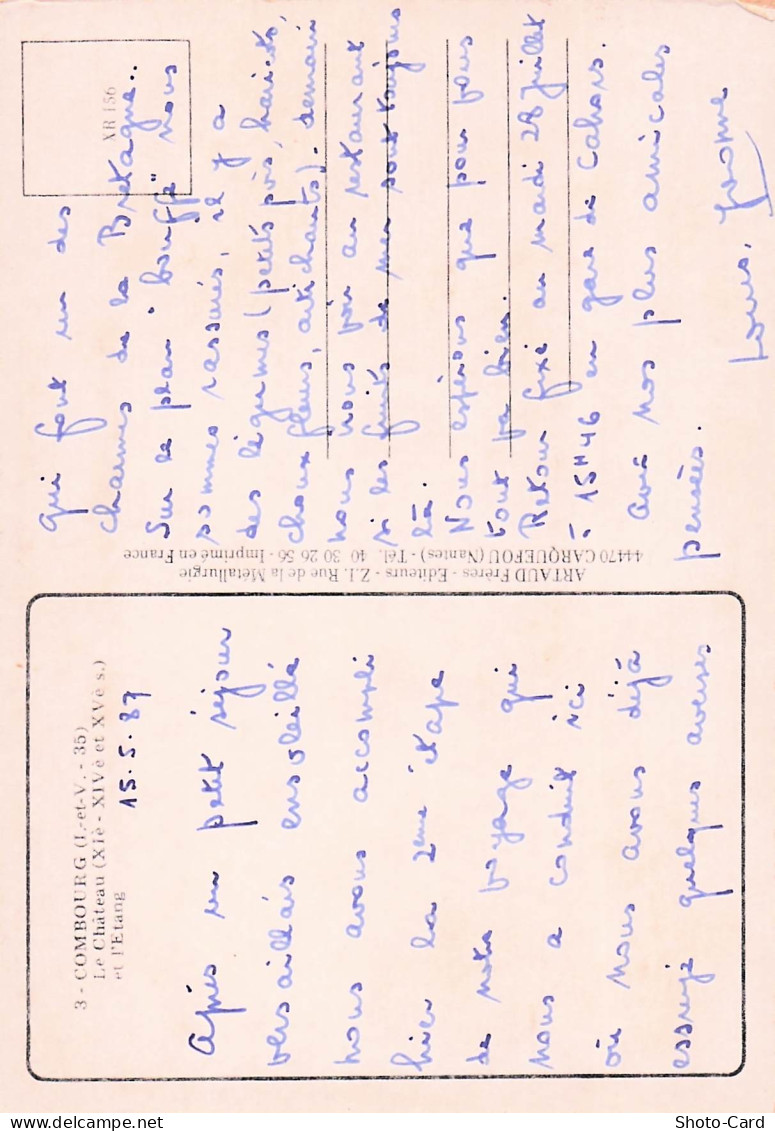 3 - COMBOURG (I.-et-V. - 35)
Le Château (XIè - XIVè et XVè s.)
et l'Etang
15.5.87
Après un petit séjour
versaillais ensoleillé
nous avons accompli
hier la 2ème étape
de notre voyage qui
nous a conduit ici
où nous avons déjà
essuyé quelques averses
ARTAUD Frères - Editeurs - Z.I. Rue de la Métallurgie
44470 CARQUEFOU (Nantes) - Tél. 40 30 26 56 - Imprimé en France
XR 156
qui font un des
charmes de la Bretagne..
Sur le plan "bouffe" nous
sommes rassurés, il y a
des légumes (petits pois, haricots,
choux fleurs, artichauts). demain
nous irons voir au restaurant
si les fruits de mer sont toujours
là.
Nous espérons que pour vous
tout va bien.
Retour fixé au mardi 28 juillet
- 15H46 en gare de Cahors.
Avec nos plus amicales
pensées.
Louis, Yvonne
Shoto-Card